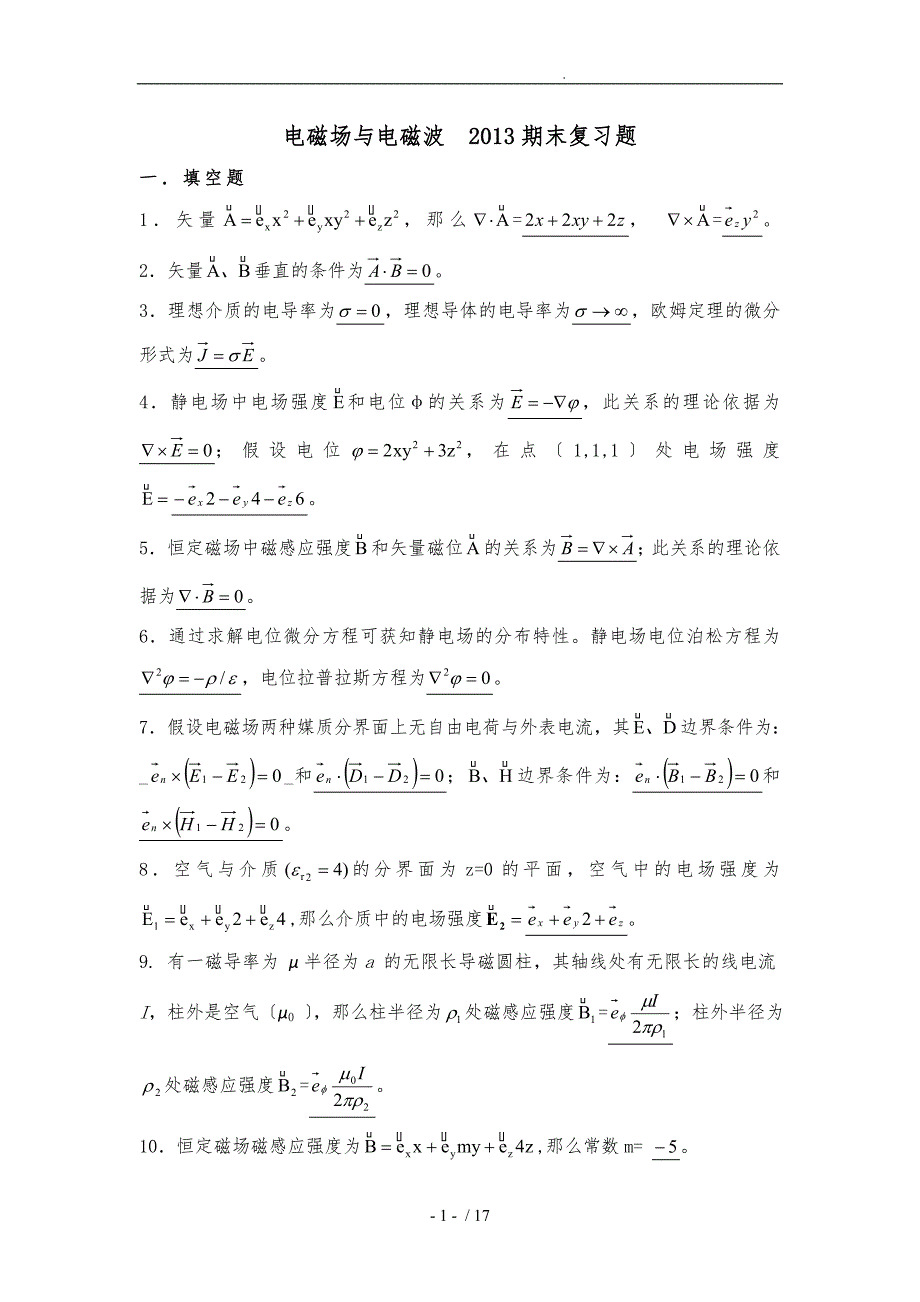 电磁场与电磁波 2013期末复习题
一．填空题
1．矢量A⃗=e⃗ₓx²+e⃗ᵧxy²+e⃗_z z²，那么∇·A⃗=2x+2xy+2z， ∇×A⃗=e⃗_z y²。
2．矢量A⃗、B⃗垂直的条件为A⃗·B⃗=0。
3．理想介质的电导率为σ=0，理想导体的电导率为σ→∞，欧姆定理的微分
形式为J⃗=σE⃗。
4．静电场中电场强度E⃗和电位φ的关系为E⃗=−∇φ，此关系的理论依据为
∇×E⃗=0；假设电位φ=2xy²+3z²，在点〔1,1,1〕处电场强度
E⃗=−e⃗ₓ2−e⃗ᵧ4−e⃗_z6。
5．恒定磁场中磁感应强度B⃗和矢量磁位A⃗的关系为B⃗=∇×A⃗；此关系的理论依
据为∇·B⃗=0。
6．通过求解电位微分方程可获知静电场的分布特性。静电场电位泊松方程为
∇²φ=−ρ/ε，电位拉普拉斯方程为∇²φ=0。
7．假设电磁场两种媒质分界面上无自由电荷与外表电流，其E⃗、D⃗边界条件为：
_e⃗ₙ×(E⃗₁−E⃗₂)=0_和e⃗ₙ·(D⃗₁−D⃗₂)=0；B⃗、H⃗边界条件为：e⃗ₙ·(B⃗₁−B⃗₂)=0和
e⃗ₙ×(H⃗₁−H⃗₂)=0。
8．空气与介质(ε_r2=4)的分界面为z=0的平面，空气中的电场强度为
E⃗₁=e⃗ₓ+e⃗ᵧ2+e⃗_z4,那么介质中的电场强度E₂=e⃗ₓ+e⃗ᵧ2+e⃗_z。
9. 有一磁导率为 μ 半径为 a 的无限长导磁圆柱，其轴线处有无限长的线电流
I，柱外是空气〔μ0 〕，那么柱半径为ρ₁处磁感应强度B⃗₁=e⃗_ϕ μI/2πρ₁；柱外半径为
ρ₂处磁感应强度B⃗₂=e⃗_ϕ μ₀I/2πρ₂。
10．恒定磁场磁感应强度为B⃗=e⃗ₓx+e⃗ᵧmy+e⃗_z4z,那么常数m= −5。
- 1 - / 17